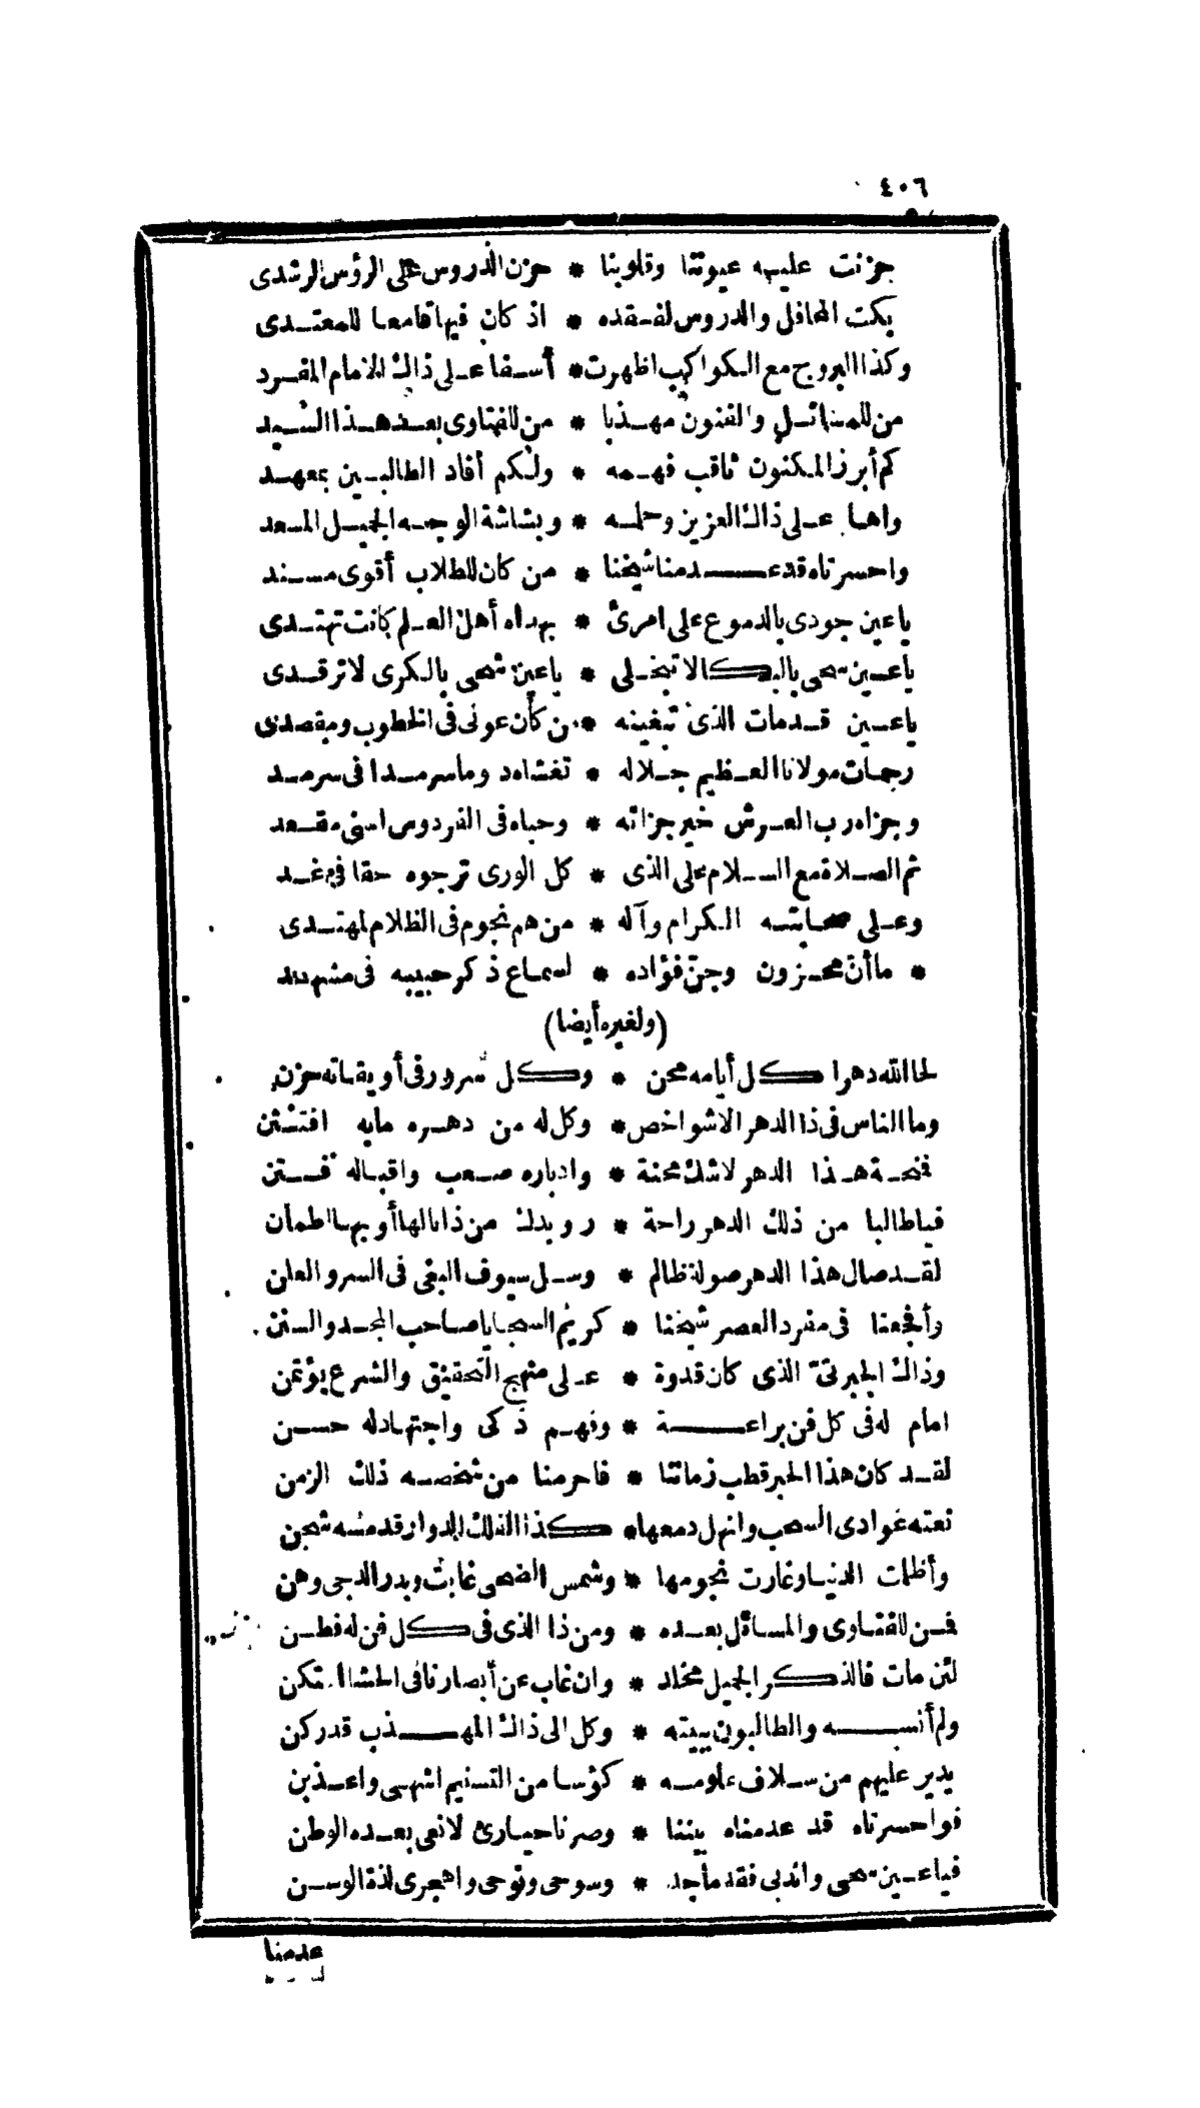 ٤٠٦
حزنت عليه عيوننا وقلوبنا * حزن الدروس على الرؤس الرشدى
بكت المحافل والدروس لفقده * اذ كان فيها قامعا للمعتدى
وكذا البروج مع الكواكب اظهرت * أسفا على ذاك الامام المفرد
من للمسائل والفنون مهذبا * من للفتاوى بعد هذا السيد
كم أبرز المكنون ثاقب فهمه * ولكم أفاد الطالبين بمعهد
واها على ذاك العزيز وحلمه * وبشاشة الوجه الجميل المسعد
واحسرتاه قد عدمنا شيخنا * من كان للطلاب أقوى مسند
ياعين جودى بالدموع على امرئ * بهداه أهل العلم كانت تهتدى
ياعين سحى بالبكا لا تبخلى * ياعين شحى بالكرى لا ترقدى
ياعين قدمات الذى تبغينه * من كان عونى فى الخطوب ومقصدى
رحمات مولانا العظيم جلاله * تغشاه دوما سرمدا فى سرمد
وجزاه رب العرش خير جزائه * وحباه فى الفردوس اسنى مقعد
ثم الصلاة مع السلام على الذى * كل الورى ترجوه حقا فى غد
وعلى صحابته الكرام وآله * من هم نجوم فى الظلام لمهتدى
* ما أن محزون وجن فؤاده * لسماع ذكر حبيبه فى مشهد
(ولغيره أيضا)
لحا الله دهرا كل أيامه محن * وكل سرور فى أويقاته حزن
وما الناس فى ذا الدهر الا شواخص * وكل له من دهره مابه افتتن
فنحة هذا الدهر لاشك محنة * وادباره صعب واقباله فتن
فياطالبا من ذلك الدهر راحة * رويدك من ذا نالها أو بها اطمأن
لقد صال هذا الدهر صولة ظالم * وسل سيوف البغى فى السر والعلن
وأفجعنا فى مفرد العصر شيخنا * كريم السجايا صاحب المجد والسنن
وذاك الجبرتىّ الذى كان قدوة * على منهج التحقيق والشرع يؤتمن
امام له فى كل فن براعة * وفهم ذكى واجتهاد له حسن
لقد كان هذا الحبر قطب زماننا * فاحرمنا من شخصه ذلك الزمن
نعته غوادى السحب وانهل دمعها * كذا الفلك الدوار قد مسه شجن
وأظلمت الدنيا وغارت نجومها * وشمس الضحى غابت وبدر الدجى وهن
فمن للفتاوى والمسائل بعده * ومن ذا الذى فى كل فن له فطن
لئن مات فالذكر الجميل مخلد * وان غاب عن أبصارنا فى الحشا سكن
ولم أنسه والطالبون ببيته * وكل الى ذاك المهذب قد ركن
يدير عليهم من سلاف علومه * كؤسا من التسنيم اشهى واعذبن
فواحسرتاه قد عدمناه بيننا * وصرنا حيارى لانعى بعده الوطن
فياعين سحى واندبى فقد ماجد * وسوحى ونوحى واهجرى لذة الوسن
عدمنا